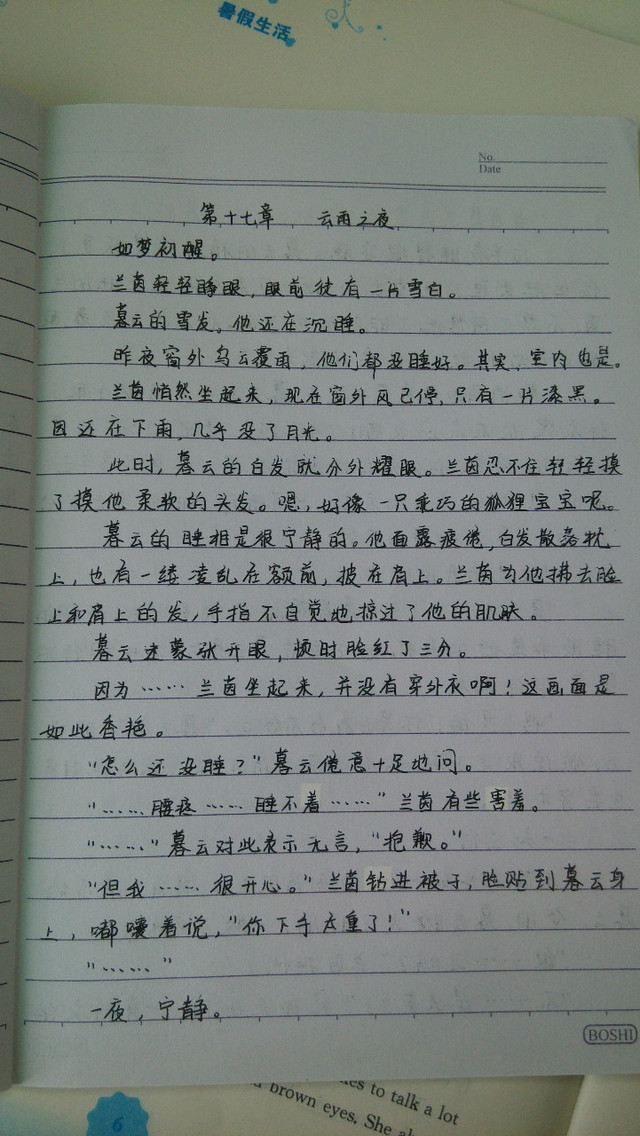 暑假生活
No.
Date
第十七章 云雨之夜
如梦初醒。
兰茵轻轻睁眼，眼前徒有一片雪白。
暮云的雪发。他还在沉睡。
昨夜窗外乌云覆雨，他们都没睡好。其实，室内也是。
兰茵悄然坐起来，现在窗外风已停，只有一片漆黑。
因还在下雨，几乎没了月光。
此时，暮云的白发就分外耀眼。兰茵忍不住轻轻摸
了摸他柔软的头发。嗯，好像一只乖巧的狐狸宝宝呢。
暮云的睡相是很宁静的。他面露疲倦，白发散落枕
上，也有一缕凌乱在额前，披在肩上。兰茵为他拂去脸
上和肩上的发，手指不自觉地掠过了他的肌肤。
暮云迷蒙张开眼，顿时脸红了三分。
因为……兰茵坐起来，并没有穿外衣啊！这画面是
如此香艳。
“怎么还没睡？”暮云倦意十足地问。
“……腰疼……睡不着……”兰茵有些害羞。
“……”暮云对此表示无言，“抱歉。”
“但我……很开心。”兰茵钻进被子，脸贴到暮云身
上，嘟囔着说，“你下手太重了！”
“……”
一夜，宁静。
BOSHI
to talk a lot
brown eyes. She
6